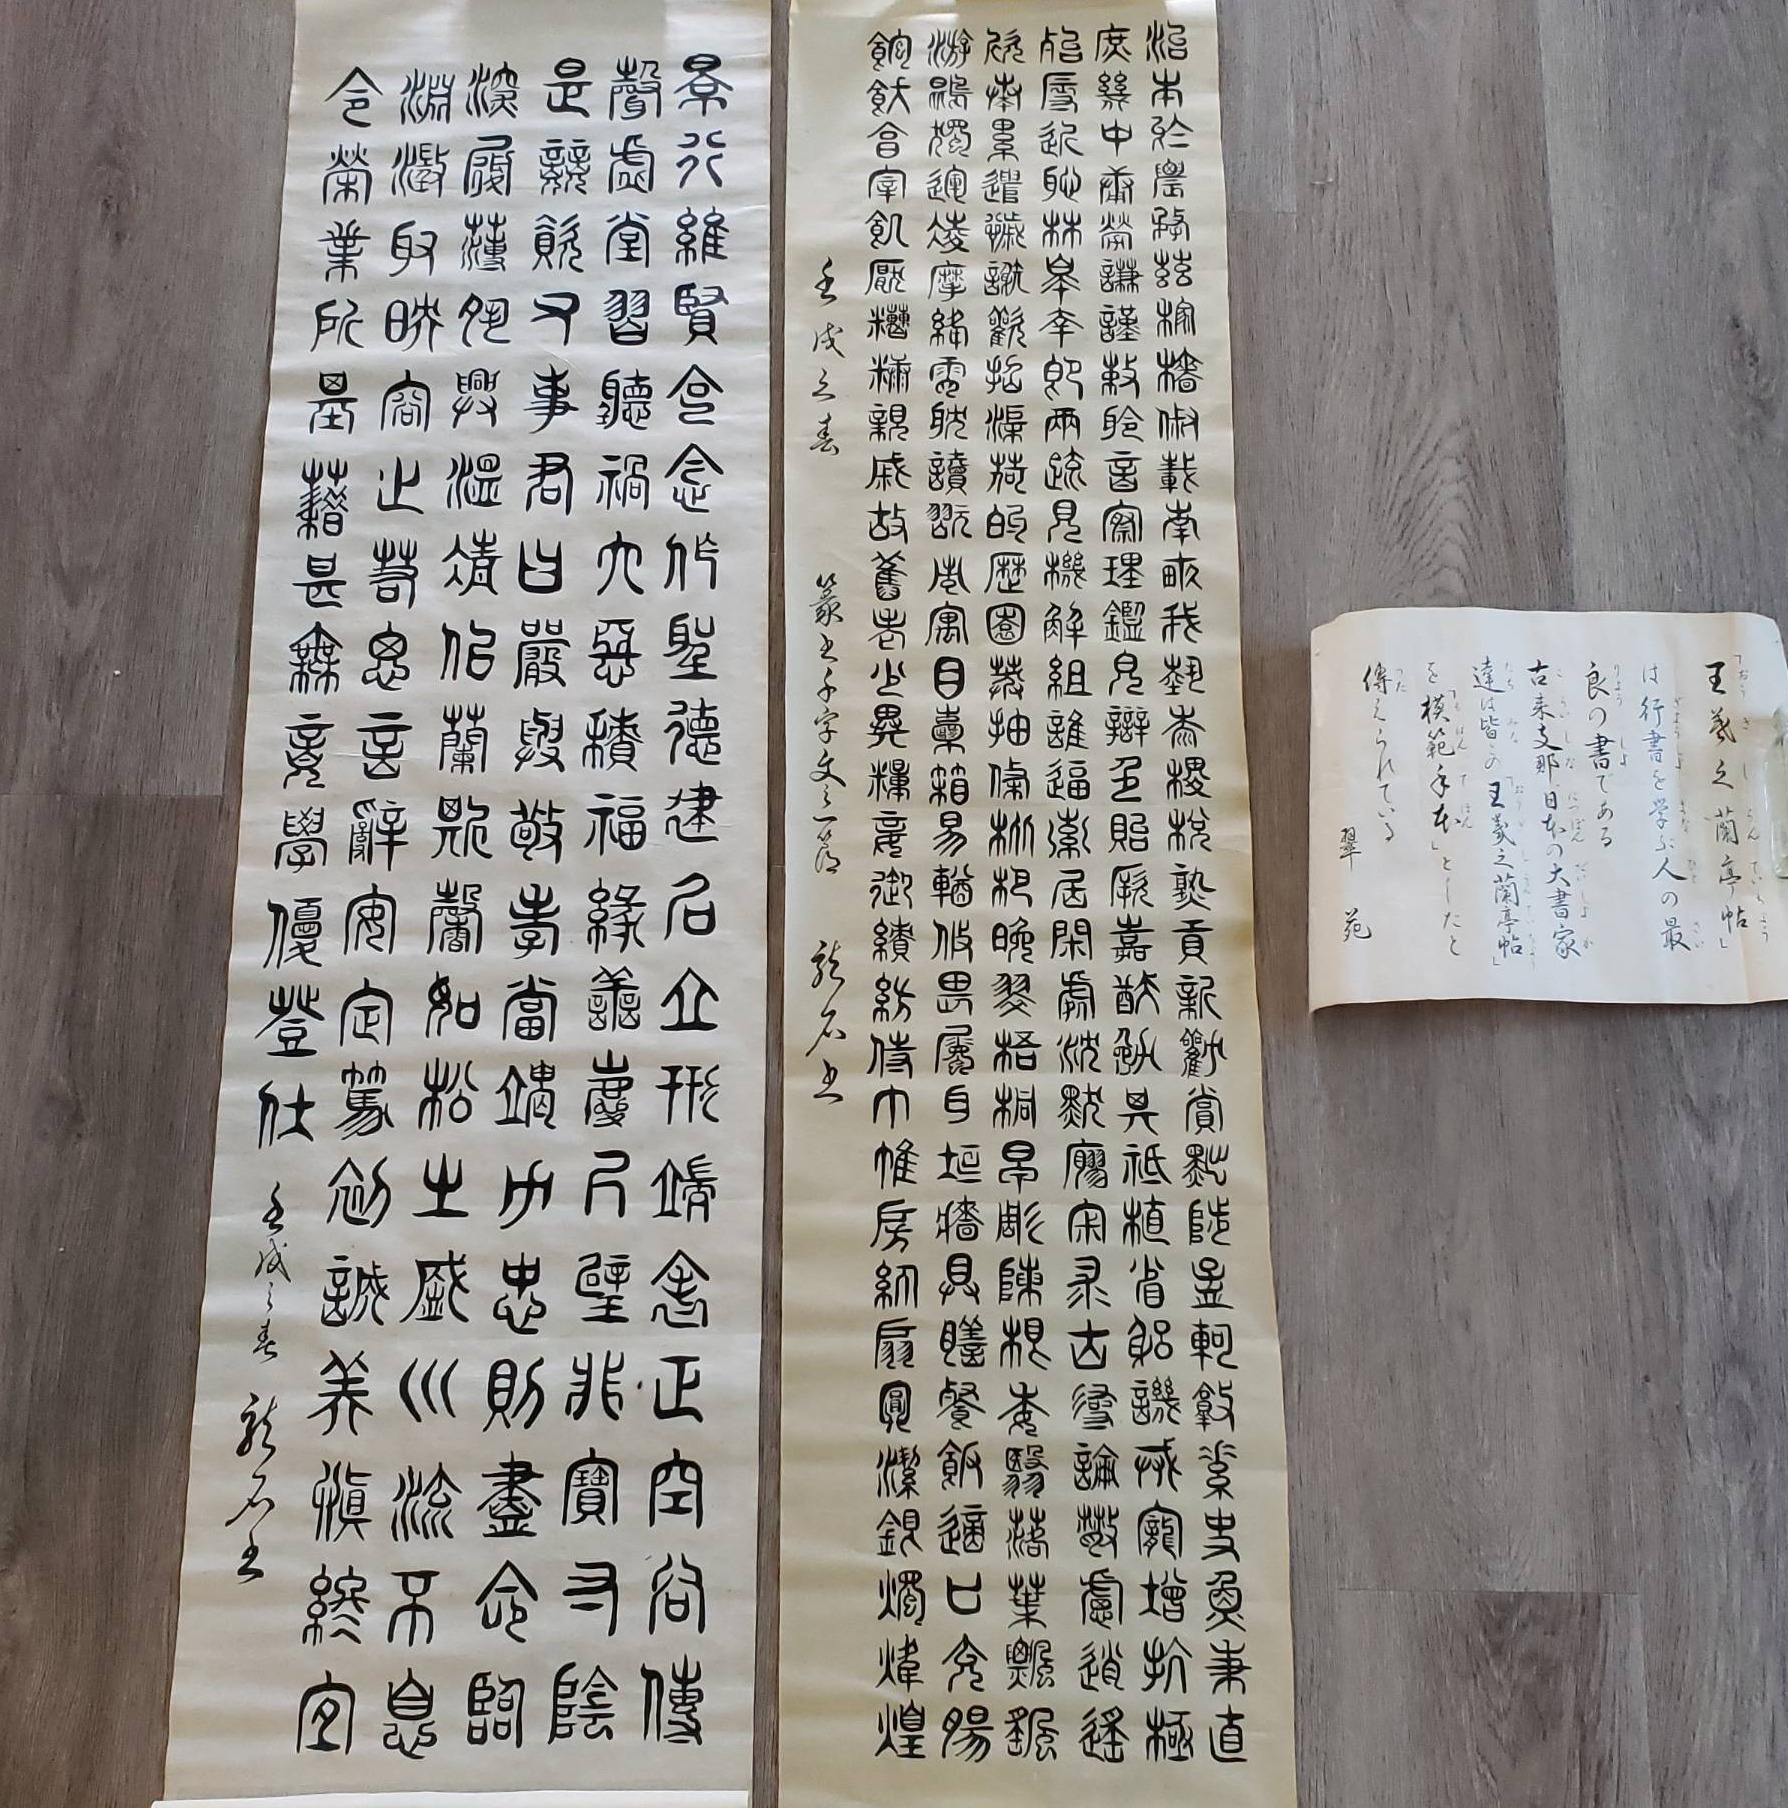 景行維賢克念作聖德建名立形端表正空谷傳
聲虛堂習聽禍因惡積福緣善慶尺璧非寶寸陰
是競資父事君曰嚴與敬孝當竭力忠則盡命臨
深履薄夙興溫凊似蘭斯馨如松之盛川流不息
淵澄取映容止若思言辭安定篤初誠美慎終宜
令榮業所基藉甚無竟學優登仕
壬戌之春 龍石書
治本於農務茲稼穡俶載南畝我藝黍稷稅熟貢新勸賞黜陟孟軻敦素史魚秉直
庶幾中庸勞謙謹敕聆音察理鑑皃辯色貽厥嘉猷勉其祗植省躬譏誡寵增抗極
殆辱近恥林皋幸即兩疏見機解組誰逼索居閑處沈默寥寂求古尋論散慮逍遙
欣奏累遣慼謝歡招渠荷的歷園莽抽條枇杷晚翠梧桐早彫陳根委翳落葉飄颻
游鵾獨運凌摩絳霄耽讀翫市寓目囊箱易輶攸畏屬耳垣牆具膳飡飯適口充腸
飽飫亨宰飢厭糟糠親戚故舊老少異糧妾御績紡侍巾帷房紈扇圓潔銀燭煒煌
壬戌之春 篆書千字文之一節 龍石書
「王羲之蘭亭帖」
は行書を学ぶ人の最
良の書である
古来支那、日本の大書家
達は皆この「王羲之蘭亭帖」
を「模範手本」としたと
傳えられている
翠苑